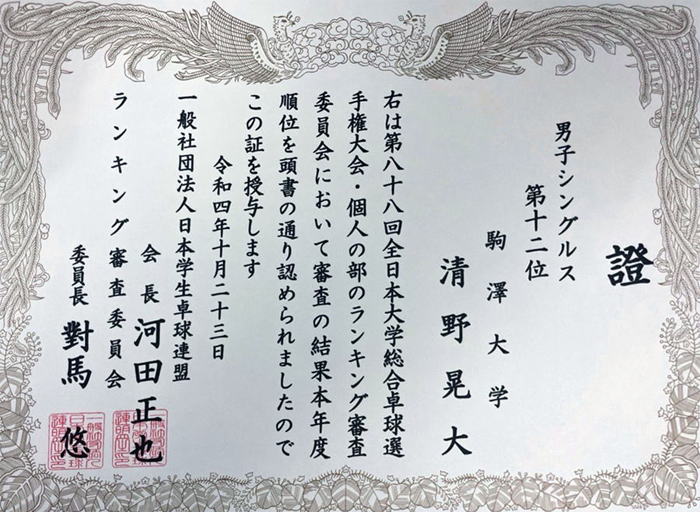 證
男子シングルス
第十二位
駒澤大学
清野晃大
右は第八十八回全日本大学総合卓球選
手権大会・個人の部のランキング審査
委員会において審査の結果本年度
順位を頭書の通り認められましたので
この証を授与します
令和四年十月二十三日
一般社団法人日本学生卓球連盟
会長 河田正也
ランキング審査委員会
委員長 對馬悠